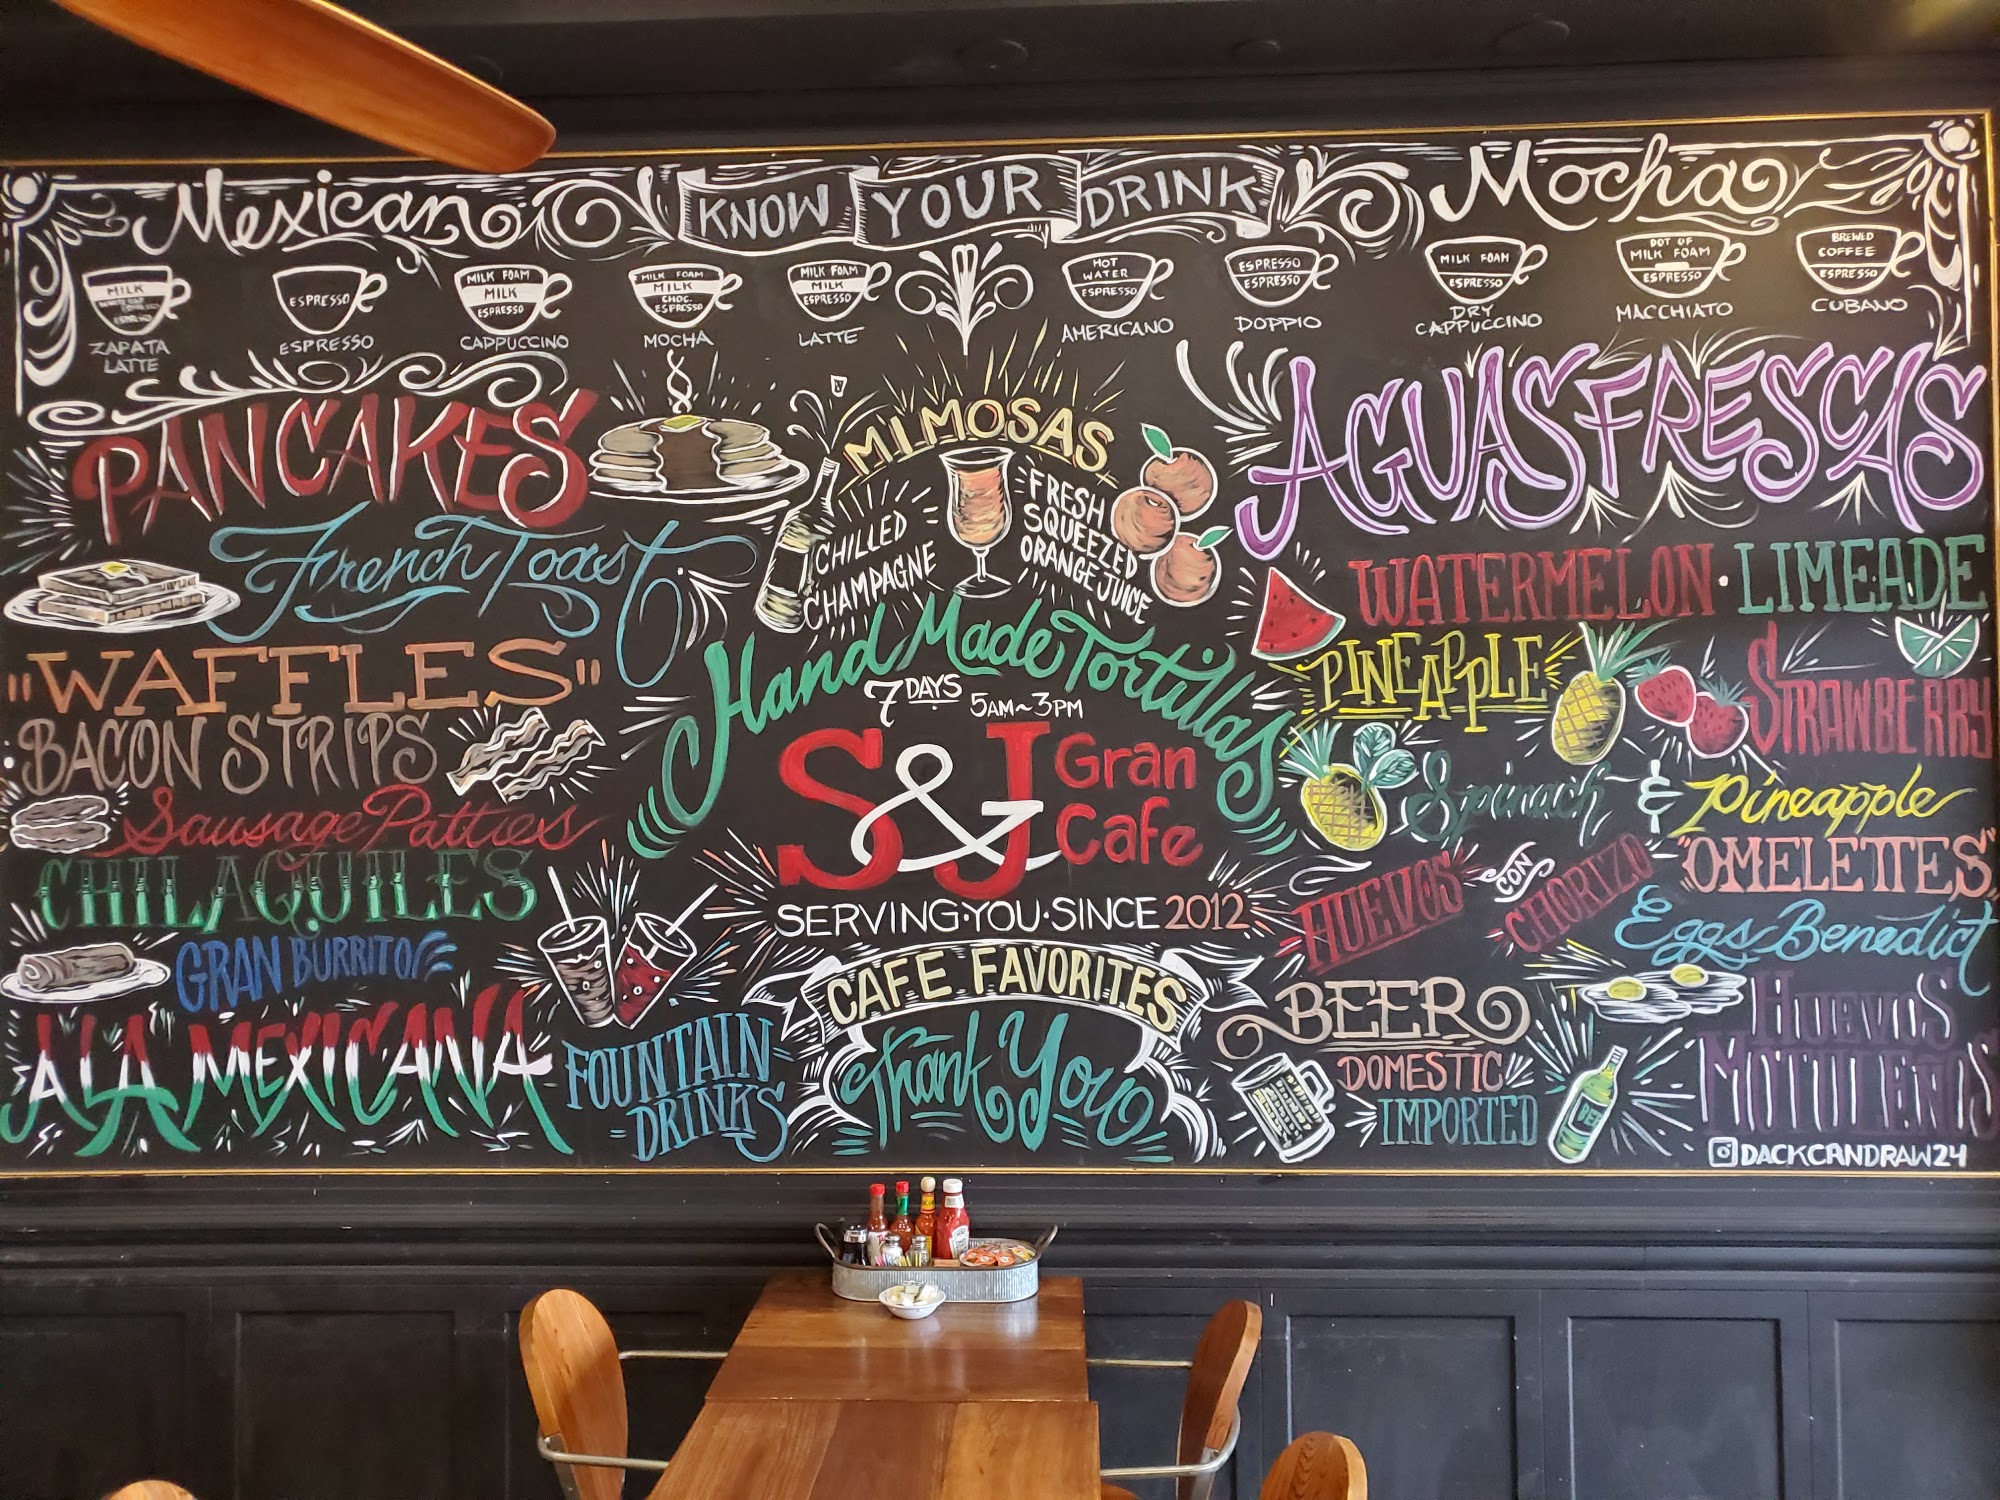 Mexican
KNOW YOUR DRINK
Mocha
MILK
ESPRESSO
ZAPATA
LATTE
ESPRESSO
ESPRESSO
MILK FOAM
MILK
ESPRESSO
CAPPUCCINO
MILK FOAM
MILK
CHOC.
ESPRESSO
MOCHA
MILK FOAM
MILK
ESPRESSO
LATTE
HOT
WATER
ESPRESSO
AMERICANO
ESPRESSO
ESPRESSO
DOPPIO
MILK FOAM
ESPRESSO
DRY
CAPPUCCINO
DOT OF
MILK FOAM
ESPRESSO
MACCHIATO
BREWED
COFFEE
ESPRESSO
CUBANO
PANCAKES
French Toast
"WAFFLES"
BACON STRIPS
Sausage Patties
CHILAQUILES
GRAN BURRITO
A LA MEXICANA
FOUNTAIN
DRINKS
MIMOSAS
CHILLED
CHAMPAGNE
FRESH
SQUEEZED
ORANGE JUICE
Hand Made Tortillas
7 DAYS 5AM~3PM
S&J Gran
Cafe
SERVING·YOU·SINCE 2012
CAFE FAVORITES
Thank You
AGUAS FRESCAS
WATERMELON·LIMEADE
PINEAPPLE
STRAWBERRY
Spinach & Pineapple
HUEVOS CON CHORIZO
"OMELETTES"
Eggs Benedict
BEER
DOMESTIC
IMPORTED
HUEVOS
MOTULEÑOS
DACKCANDRAW24